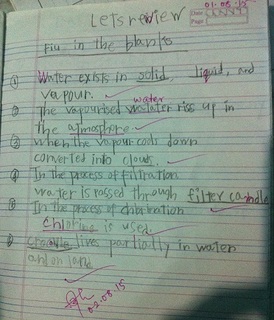 Let's review
Date 01.08.15
Page
Fill in the blanks
① Water exists in solid, liquid, and
vapour.
② The vapourised water rises up in
the atmosphere
③ When the vapour cools down
converted into clouds.
④ In the process of filtration
water is passed through filter candle
⑤ In the process of chlorination
Chlorine is used.
⑥ lives partially in water
and on land
02.08.15